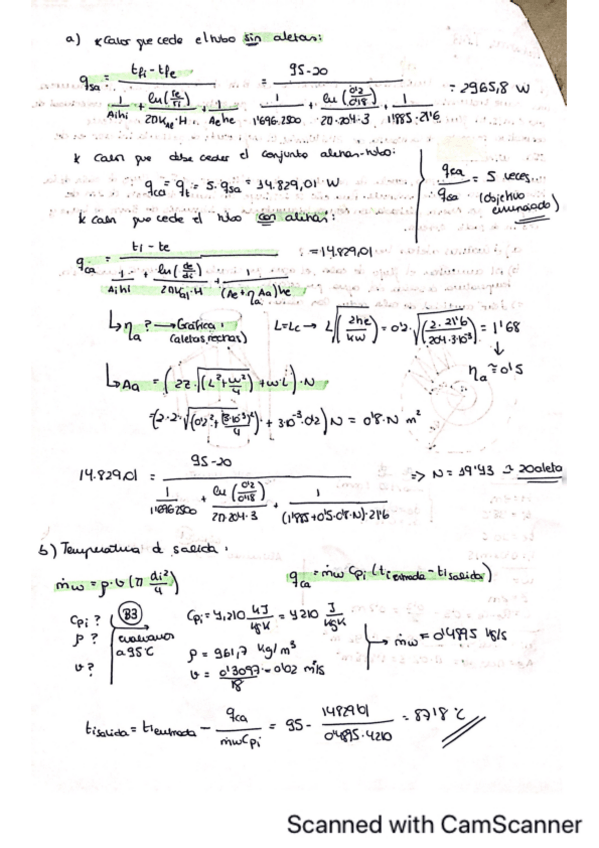 a) * Calor que cede el tubo sin aletas:
q_sa = (tfi - tfe) / (1/(Aihi) + ln(re/ri)/(2πK_Ae·H) + 1/(Aehe)) = (95-20) / (1/(1'696.2500) + ln(0'2/0'18)/(2π·204·3) + 1/(1'885·21'6)) = 2965,8 W
* Calor que debe ceder el conjunto aletas-tubo:
q_ca = q_t = 5·q_sa = 14.829,01 W
q_ca/q_sa = 5 veces... (objetivo enunciado)
* Calor que cede el tubo con aletas:
q_ca = (ti - te) / (1/(Aihi) + ln(de/di)/(2πK_al·H) + 1/((Ae+ηa Aa)he)) = 14.829,01
↳ ηa ? → Gráfica: (aletas rectas) L=Lc → L√(2he/kw) = 0'2·√(2·21'6/(204·3·10⁻³)) = 1'68
↓
ηa ≈ 0'5
↳ Aa = (2Z·√(L²+w²/4) + w·L)·N
=(2·2·√(0'2²+(3·10⁻³)²/4) + 3·10⁻³·0'2) N = 0'8·N m²
14.829,01 = (95-20) / (1/(1'696·2500) + ln(0'2/0'18)/(2π·204·3) + 1/((1'885+0'5·0'8·N)·21'6)) => N = 19'93 → 20 aleta
b) Temperatura d salida:
ṁw = ρ·v(π di²/4) q_ca = ṁw Cpi (ti entrada - ti salida)
Cpi ? ρ ? v ? (B3) evaluamos a 95°C
Cpi = 4,210 kJ/kgK = 4210 J/kgK
ρ = 961,7 kg/m³ → ṁw = 0'4895 kg/s
v = 0'3097/18 = 0'02 m/s
ti salida = ti entrada - q_ca/(ṁw Cpi) = 95 - 14829'01/(0'4895·4210) = 87'18 °C
Scanned with CamScanner